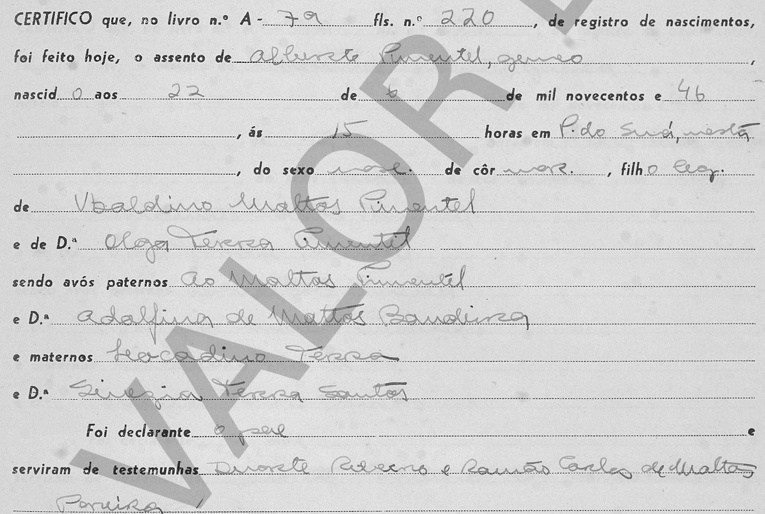 CERTIFICO que, no livro n.º A - 79 fls. n.º 220, de registro de nascimentos,
foi feito hoje, o assento de Alberto Pimentel, gemeo,
nascido aos 22 de 6 de mil novecentos e 46
, ás 15 horas em P. do Suá, nesta
, do sexo masc. de côr mor., filho leg.
de Ubaldino Mattos Pimentel
e de D.ª Olga Terra Pimentel
sendo avós paternos Mattos Pimentel
e D.ª Adalfina de Mattos Bandeira
e maternos Leocadino Terra
e D.ª Terra Santos
Foi declarante o pae e
serviram de testemunhas Duarte Ribeiro e Ramão Carlos de Mattos
Pareira
VALOR